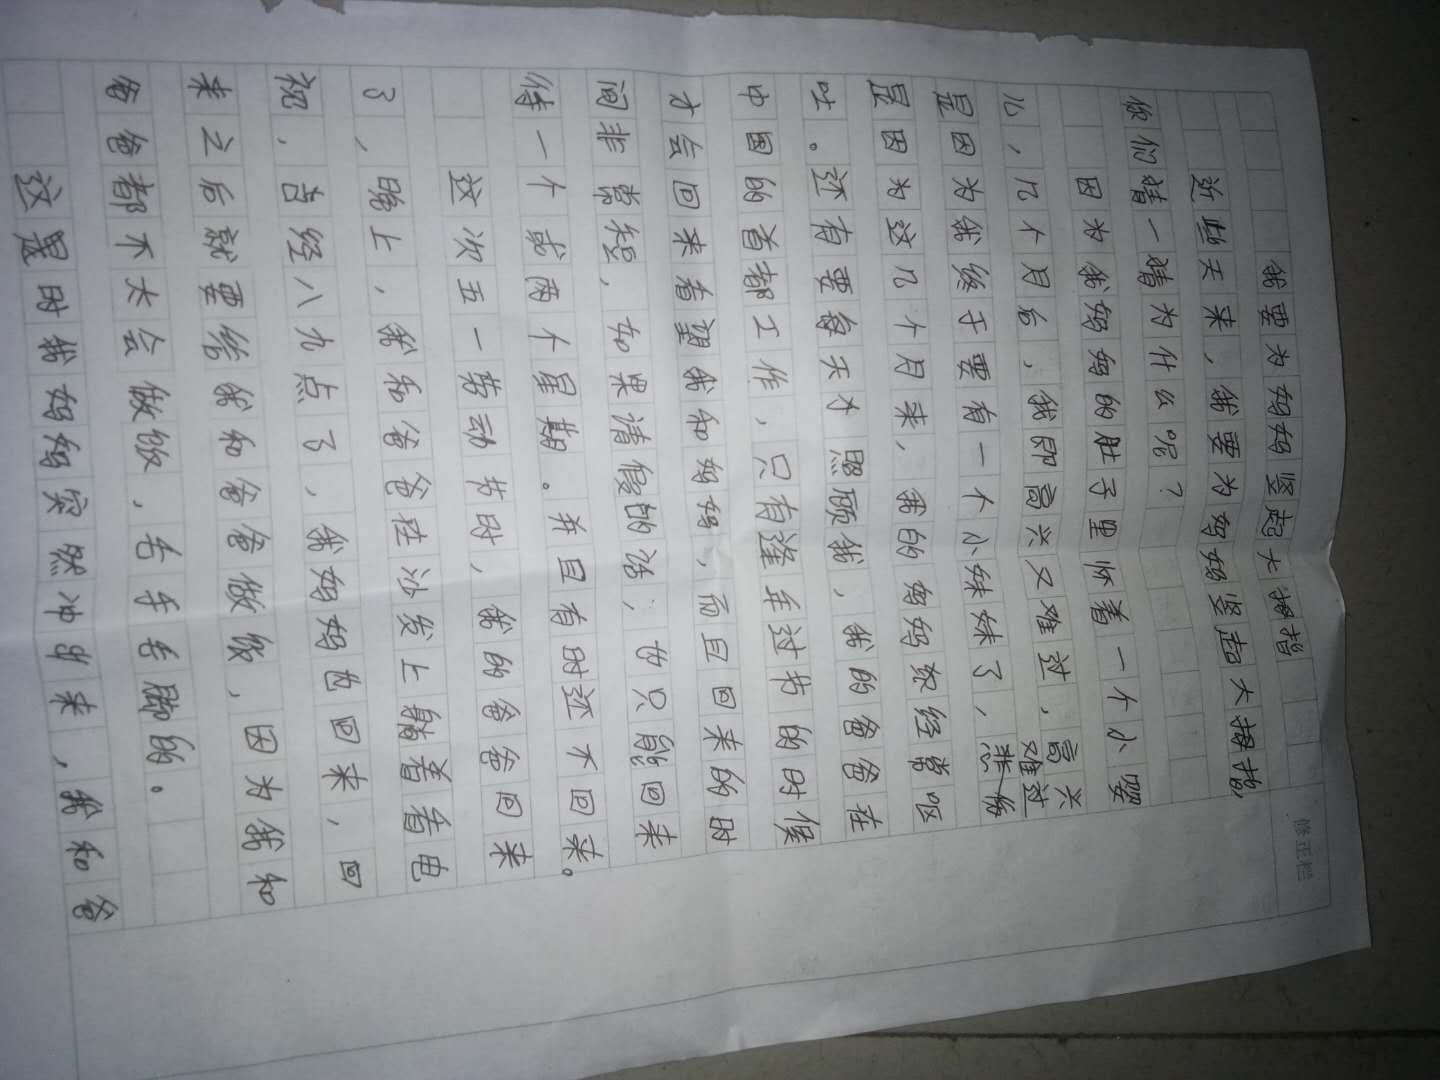 我要为妈妈竖起大拇指
近些天来，我要为妈妈竖起大拇指，
你们猜一猜为什么呢？
因为我妈妈的肚子里怀着一个小婴
儿，几个月后，我即高兴又难过，高兴
是因为我终于要有一个小妹妹了，难过
是因为这几个月来，我的妈妈经常呕
吐。还有要每天才照顾我，我的爸爸在
中国的首都工作，只有逢年过节的时候
才会回来看望我和妈妈，而且回来的时
间非常短，如果请假的话，也只能回来
待一个或两个星期。并且有时还不回来。
这次五一劳动节时，我的爸爸回来
了，晚上，我和爸爸在沙发上躺着看电
视，已经八九点了，我妈妈也回来，回
来之后就要给我和爸爸做饭，因为我和
爸爸都不太会做饭，毛手毛脚的。
这是时我妈妈突然冲出来，我和爸
修正栏